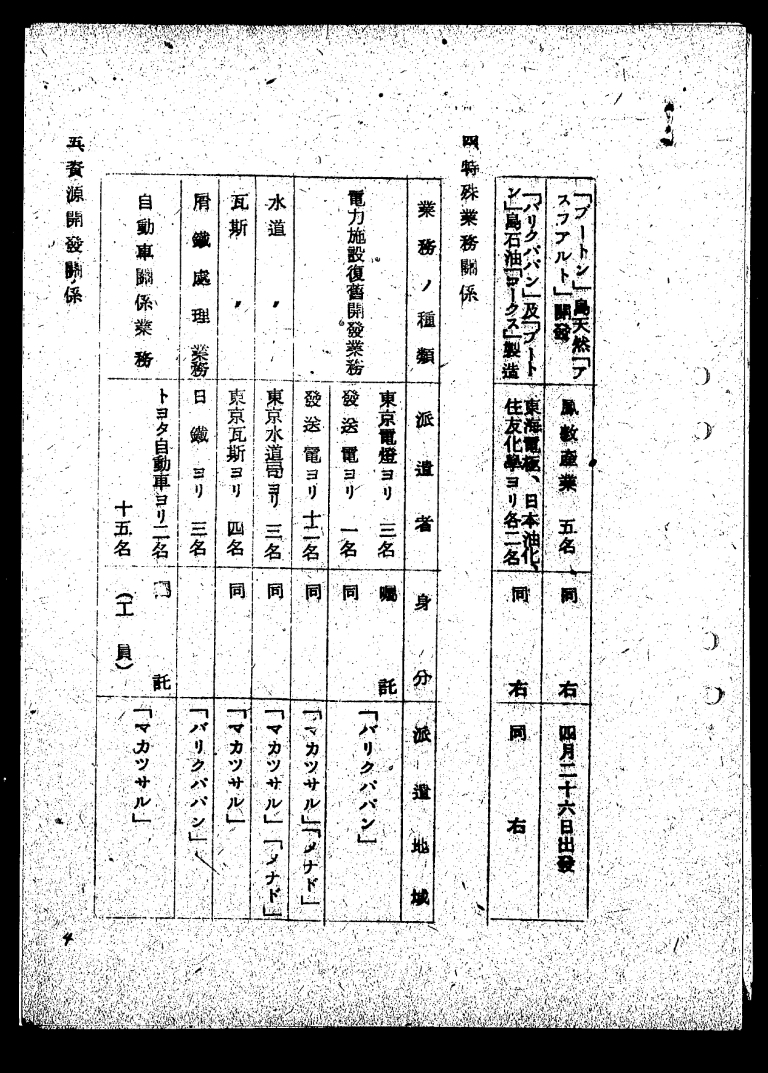 「ブートン」島天然「ア
スフアルト」開發
鳳敷産業 五名
同 右
四月二十六日出發
「バリクパパン」及「ブート
ン」島石油「コークス」製造
東海電極、日本油化、
住友化學ヨリ各二名
同 右
同 右
四、特殊業務關係
業務ノ種類
派遣者
身分
派遣地域
電力施設復舊開發業務
東京電燈ヨリ 三名
囑託
發送電ヨリ 一名
同
「バリクパパン」
發送電ヨリ 十二名
同
「マカツサル」「メナド」
水道 〃
東京水道司ヨリ 三名
同
「マカツサル」「メナド」
瓦斯 〃
東京瓦斯ヨリ 四名
同
「マカツサル」
屑鐵處理業務
日鐵ヨリ 三名
「バリクパパン」
自動車關係業務
トヨタ自動車ヨリ二名
囑託
十五名
(工員)
「マカツサル」
五、資源開發關係
4